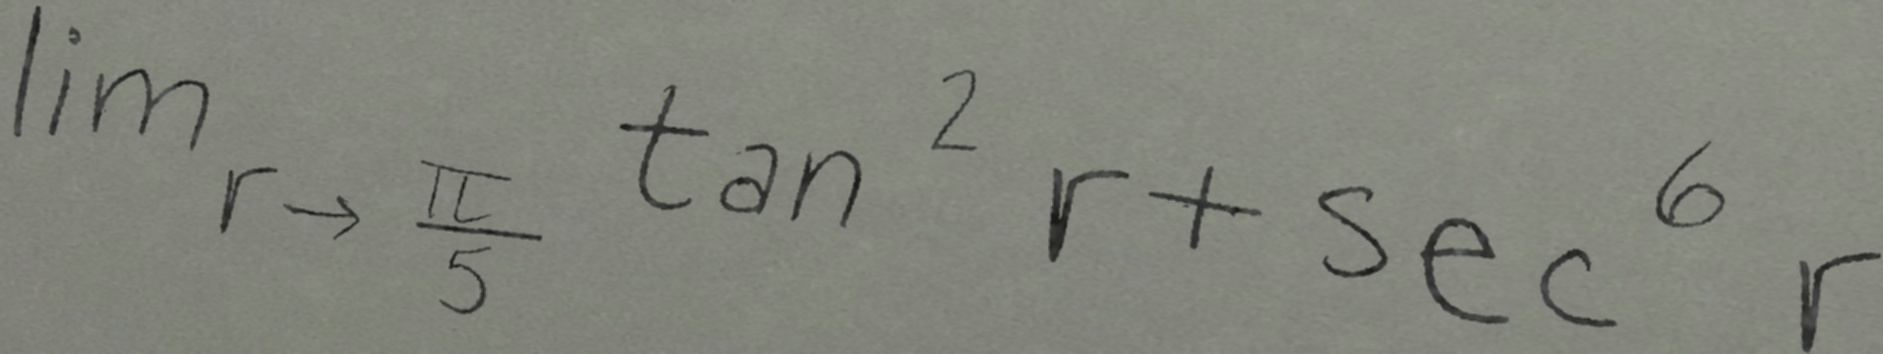 \lim_{r \to \frac{\pi}{5}} \tan^2 r + \sec^6 r